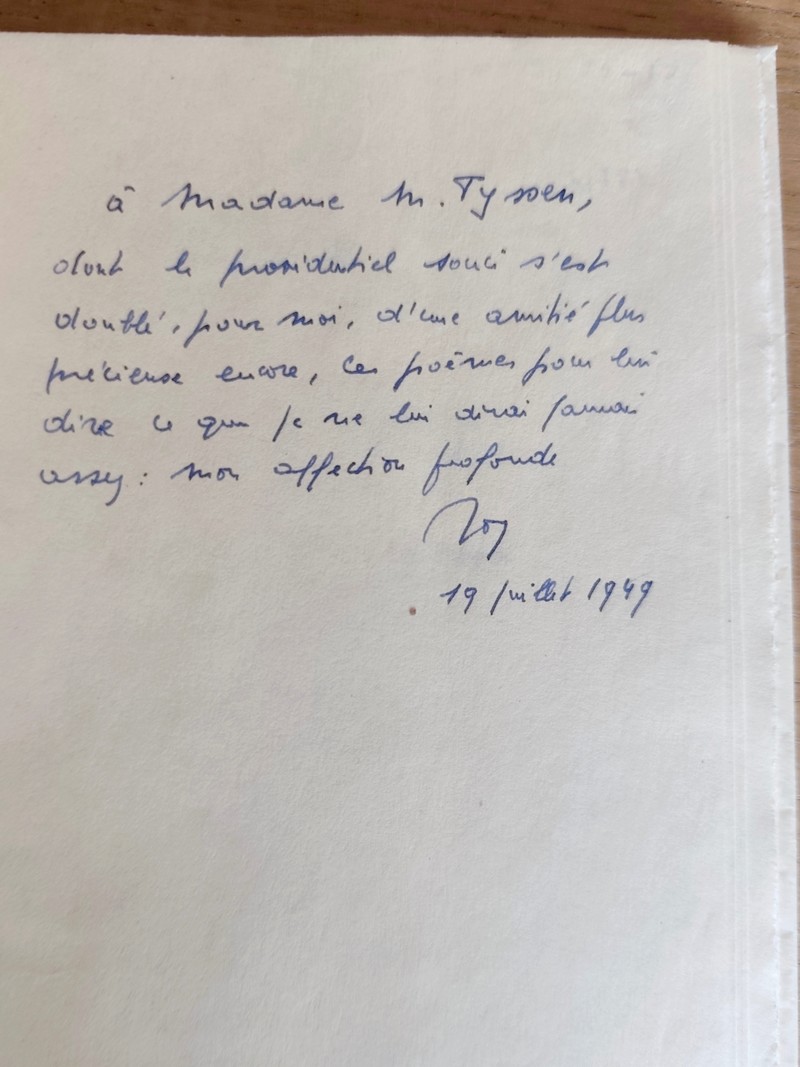 à Madame M. Tyssen,
dont le providentiel souci s'est
doublé, pour moi, d'une amitié plus
précieuse encore, ces poèmes pour lui
dire ce que je ne lui dirai jamais
assez : mon affection profonde
19 juillet 1949